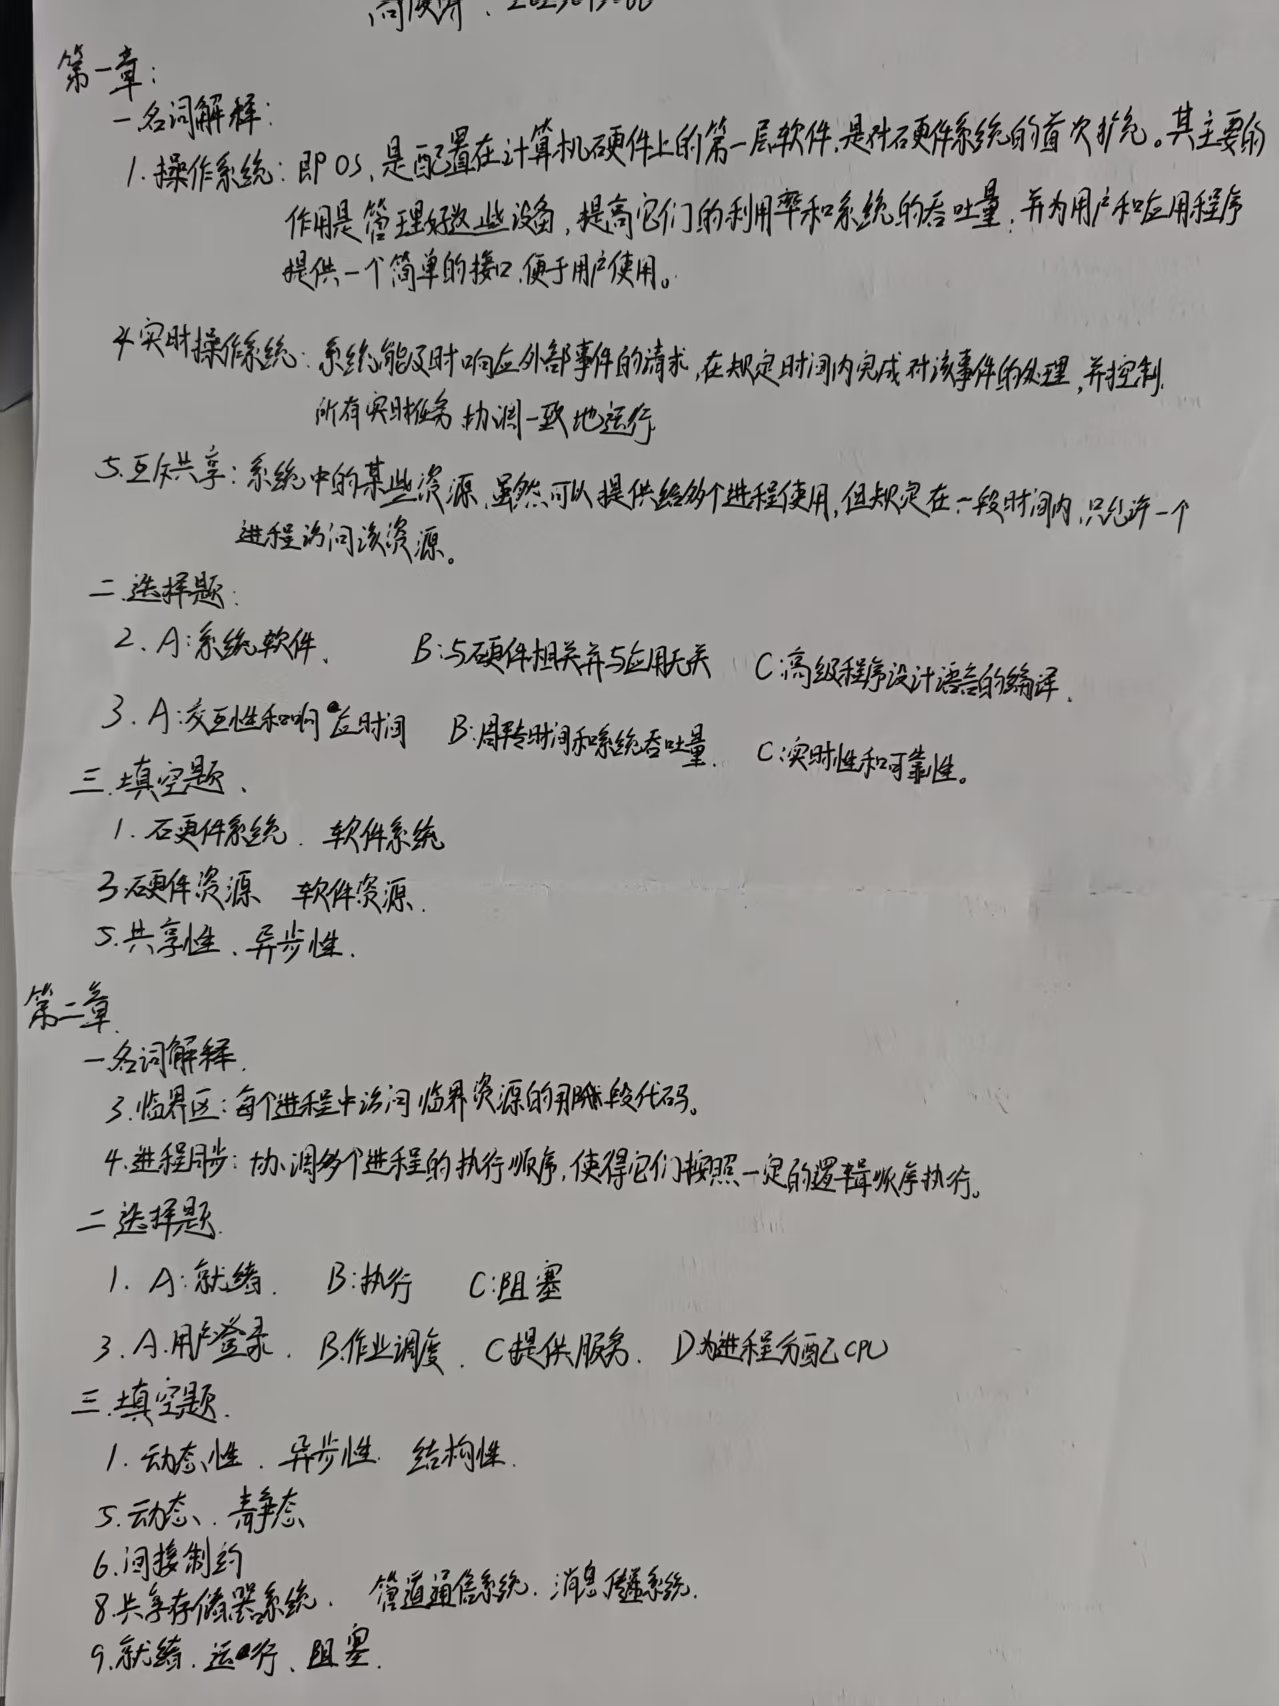 第一章:
一名词解释:
1.操作系统:即OS,是配置在计算机硬件上的第一层软件,是对硬件系统的首次扩充。其主要的
作用是管理好这些设备,提高它们的利用率和系统的吞吐量,并为用户和应用程序
提供一个简单的接口,便于用户使用。
4实时操作系统:系统能及时响应外部事件的请求,在规定时间内完成对该事件的处理,并控制
所有实时任务协调一致地运行
5.互斥共享:系统中的某些资源,虽然可以提供给多个进程使用,但规定在一段时间内,只允许一个
进程访问该资源。
二.选择题:
2. A:系统软件、 B:与硬件相关并与应用无关 C:高级程序设计语言的编译.
3. A:交互性和响应时间 B:周转时间和系统吞吐量. C:实时性和可靠性。
三.填空题、
1. 硬件系统. 软件系统
3.硬件资源 软件资源.
5.共享性、异步性.
第二章.
一名词解释.
3.临界区:每个进程中访问临界资源的那段代码。
4.进程同步:协调多个进程的执行顺序,使得它们按照一定的逻辑顺序执行。
二选择题.
1. A:就绪. B:执行 C:阻塞
3. A.用户登录. B.作业调度. C提供服务. D为进程分配CPU
三.填空题.
1.动态性. 异步性. 结构性.
5.动态、静态
6.间接制约
8.共享存储器系统. 管道通信系统. 消息传递系统.
9.就绪.运行、阻塞.